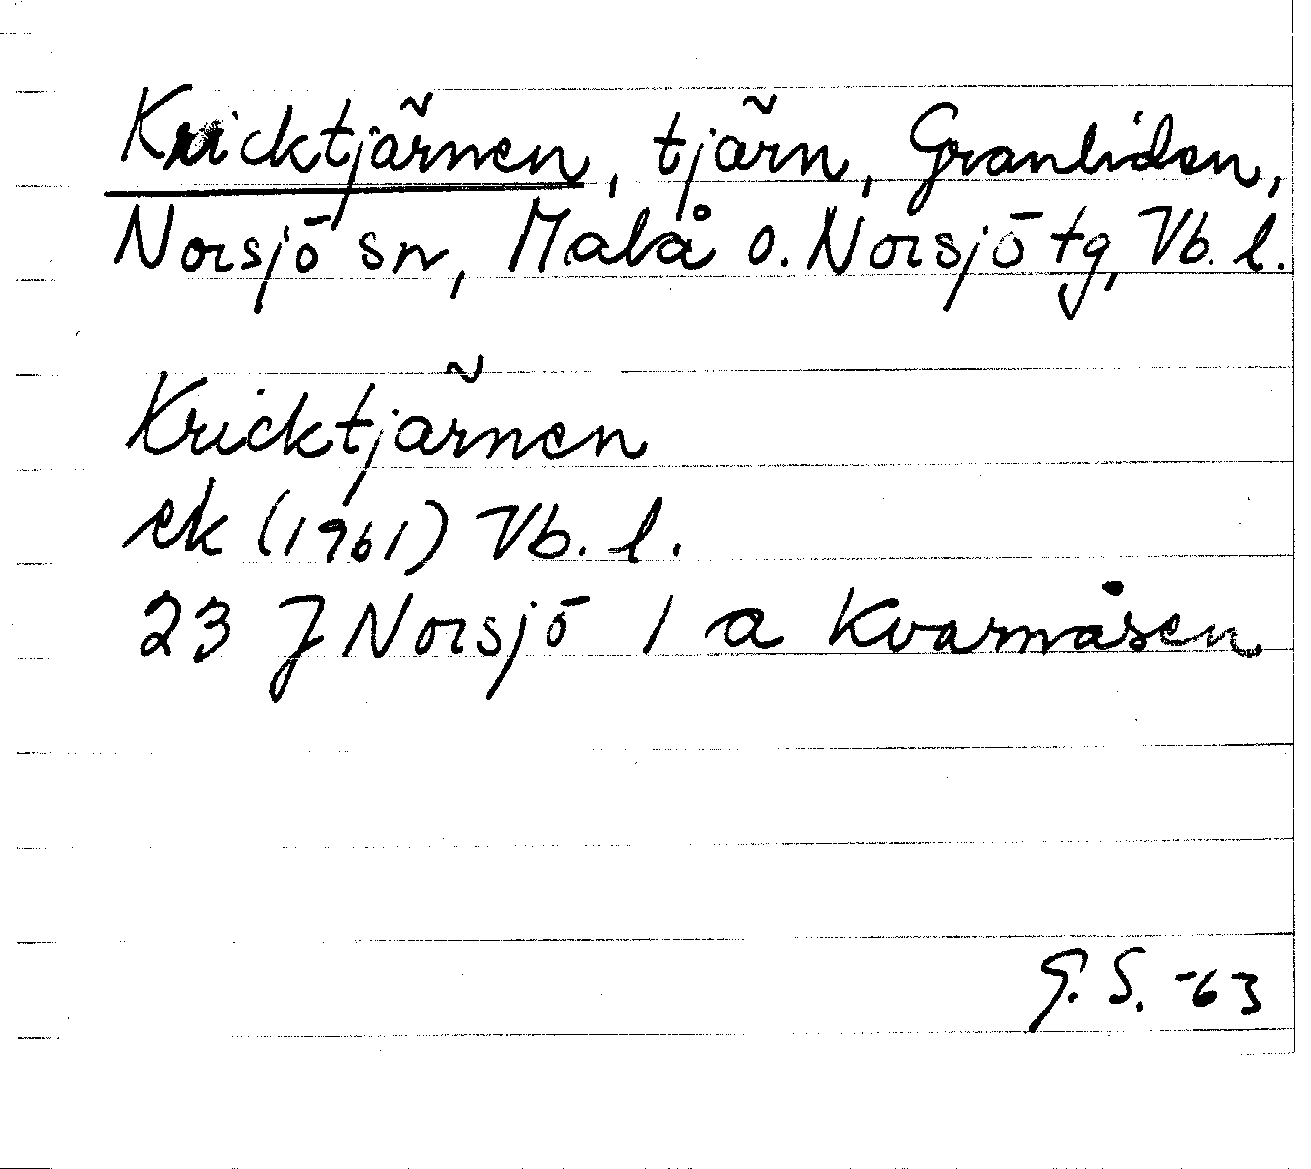 Kricktjärnen, tjärn, Granliden,
Norsjö sn, Malå o. Norsjö tg, Vb. l.
Kricktjärnen
ek (1961) Vb. l.
23 J Norsjö 1 a Kvarnåsen
G. S. -63